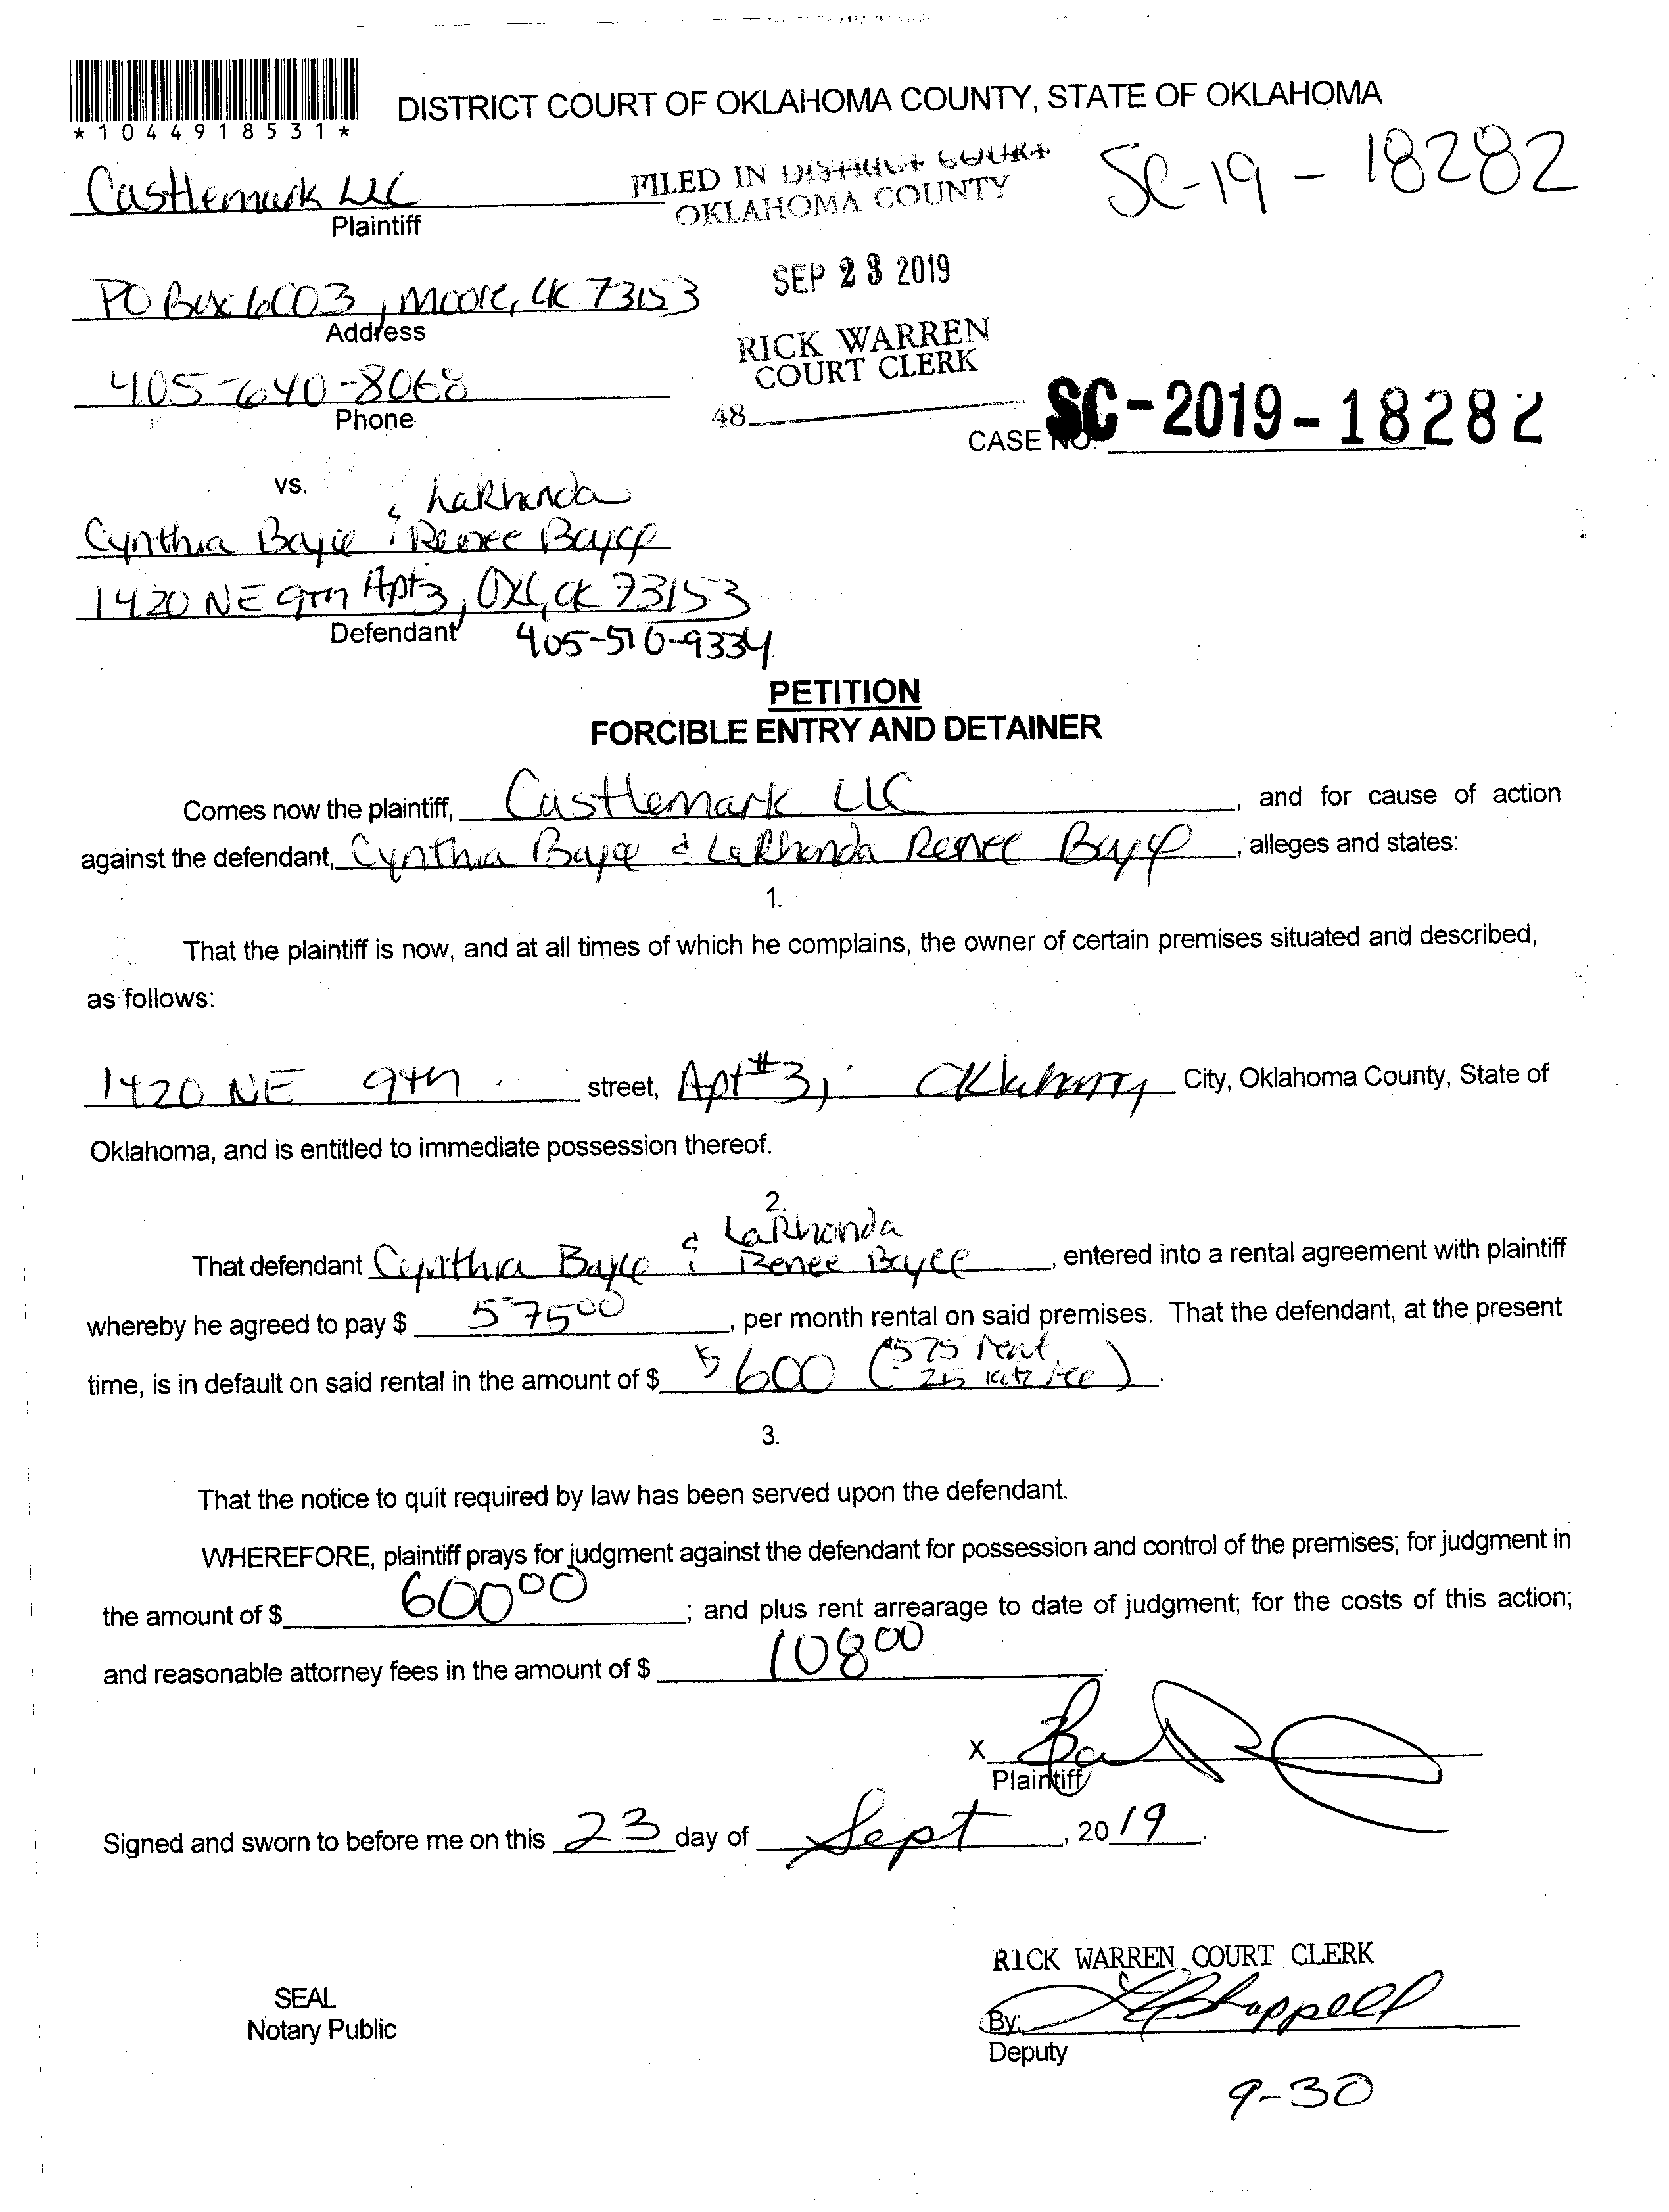 *1044918531*
DISTRICT COURT OF OKLAHOMA COUNTY, STATE OF OKLAHOMA
SC-19-18282
Castlemark LLC
FILED IN DISTRICT COURT
OKLAHOMA COUNTY
Plaintiff
SEP 23 2019
PO Box 6003, Moore, OK 73153
Address
RICK WARREN
COURT CLERK
405-640-8068
Phone
48
CASE NO. SC-2019-18282
vs.
& LaRhonda
Cynthia Bayce Renee Bayce
1420 NE 9th Apt 3, OKC, OK 73153
Defendant
405-510-9334
PETITION
FORCIBLE ENTRY AND DETAINER
Comes now the plaintiff, Castlemark LLC, and for cause of action
against the defendant, Cynthia Bayce & LaRhonda Renee Bayce, alleges and states:
1.
That the plaintiff is now, and at all times of which he complains, the owner of certain premises situated and described,
as follows:
1420 NE 9th street, Apt #3, Oklahoma City, Oklahoma County, State of
Oklahoma, and is entitled to immediate possession thereof.
2.
& LaRhonda
That defendant Cynthia Bayce Renee Bayce, entered into a rental agreement with plaintiff
whereby he agreed to pay $ 575 00, per month rental on said premises. That the defendant, at the present
time, is in default on said rental in the amount of $ $600 ($575 rent 25 late fee).
3.
That the notice to quit required by law has been served upon the defendant.
WHEREFORE, plaintiff prays for judgment against the defendant for possession and control of the premises; for judgment in
the amount of $ 600 00; and plus rent arrearage to date of judgment; for the costs of this action;
and reasonable attorney fees in the amount of $ 108 00.
X
Plaintiff
Signed and sworn to before me on this 23 day of Sept, 2019.
RICK WARREN COURT CLERK
SEAL
Notary Public
By:
Deputy
9-30